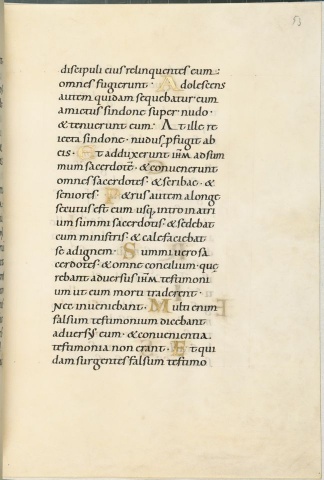 53
discipuli eius relinquentes eum;
omnes fugierunt· Adolescens
autem quidam sequebatur eum
amictus sindone super nudo·
& tenuerunt eum· At ille re
iecta sindone· nudus pfugit ab
eis· Et adduxerunt ihm ad sum
mum sacerdotē· & convenerunt
omnes sacerdotes· & scribae· &
seniores· P&rus autem a longe
secutus est eum usq; intro in atri
um summi sacerdotis· & sedebat
cum ministris & calefaciebat
se ad ignem· Summi vero sa
cerdotes· & omne concilium quę
rebant adversus ihm testimoni
um ut eum morti traderent·
Nec inveniebant· Multi enim
falsum testimonium dicebant
adversus eum· & convenientia
testimonia non erant· Et qui
dam surgentes falsum testimo